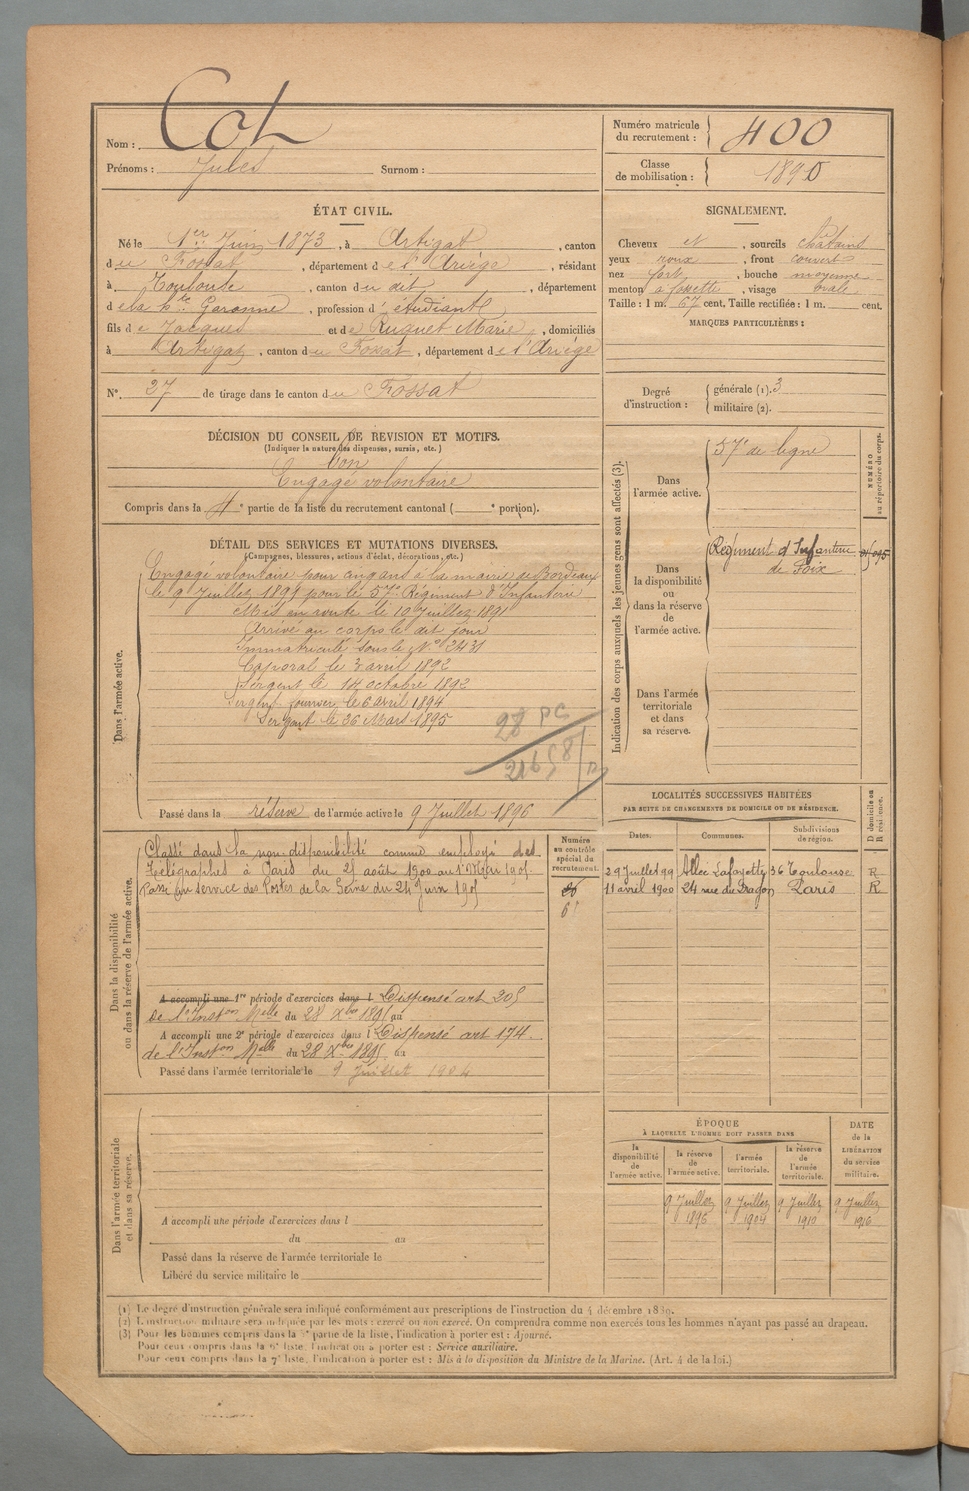 Nom : Cot
Prénoms : Jules Surnom :
Numéro matricule du recrutement : 400
Classe de mobilisation : 1890
ÉTAT CIVIL.
Né le 1er Juin 1873, à Artigat, canton
du Fossat, département de l'Ariège, résidant
à Toulouse, canton du dit, département
de la Hte Garonne, profession d'étudiant
fils de Jacques et de Ruquet Marie, domiciliés
à Artigat, canton du Fossat, département de l'Ariège
N°. 37 de tirage dans le canton du Fossat
SIGNALEMENT.
Cheveux et, sourcils châtains
yeux roux, front couvert
nez fort, bouche moyenne
menton à fossette, visage ovale
Taille : 1 m. 67 cent. Taille rectifiée : 1 m. cent.
MARQUES PARTICULIÈRES :
Degré d'instruction : générale (1). 3
militaire (2).
DÉCISION DU CONSEIL DE REVISION ET MOTIFS.
(Indiquer la nature des dispenses, sursis, etc.)
bon
Engagé volontaire
Compris dans la 4e partie de la liste du recrutement cantonal ( e portion).
DÉTAIL DES SERVICES ET MUTATIONS DIVERSES.
(Campagnes, blessures, actions d'éclat, décorations, etc.)
Dans l'armée active.
Engagé volontaire pour cinq ans à la mairie de Bordeaux
le 9 Juillet 1891 pour le 57e Régiment d'Infanterie
Mis en route le 10 Juillet 1891
Arrivé au corps le dit jour
Immatriculé sous le N° 2431
Caporal le 3 avril 1892
Sergent le 14 octobre 1892
Sergent fourrier le 6 avril 1894
Sergent le 26 Mars 1895
Passé dans la réserve de l'armée active le 9 Juillet 1896
Indication des corps auxquels les jeunes gens sont affectés (3).
NUMÉRO au répertoire du corps.
Dans l'armée active.
57e de ligne
Dans la disponibilité ou dans la réserve de l'armée active.
Régiment d'Infanterie
de Foix
Dans l'armée territoriale et dans sa réserve.
LOCALITÉS SUCCESSIVES HABITÉES
PAR SUITE DE CHANGEMENTS DE DOMICILE OU DE RÉSIDENCE.
D domicile ou R résidence.
Dates. Communes. Subdivisions de région.
29 Juillet 99 Allée Lafayette 36 Toulouse R
11 avril 1900 24 rue du Dragon Paris R
Dans la disponibilité ou dans la réserve de l'armée active.
Numéro au contrôle spécial du recrutement.
Classé dans la non-disponibilité comme employé des
Télégraphes à Paris du 25 août 1900 au
Passé au service des Postes de la Seine du 24 Juin
A accompli une 1re période d'exercices dans l Dispensé art 205
de l'Inston Melle du 28 Xbre 1895 au
A accompli une 2e période d'exercices dans l Dispensé art 174
de l'Inston Melle du 28 Xbre 1895 au
Passé dans l'armée territoriale le 9 Juillet 1904
ÉPOQUE
À LAQUELLE L'HOMME DOIT PASSER DANS
la disponibilité de l'armée active.
la réserve de l'armée active.
l'armée territoriale.
la réserve de l'armée territoriale.
DATE de la LIBÉRATION du service militaire.
9 Juillet 1896 9 Juillet 1904 9 Juillet 1910 9 Juillet 1916
Dans l'armée territoriale et dans sa réserve.
A accompli une période d'exercices dans l
du au
Passé dans la réserve de l'armée territoriale le
Libéré du service militaire le
(1) Le degré d'instruction générale sera indiqué conformément aux prescriptions de l'instruction du 4 décembre 1889.
(2) L'instruction militaire sera indiquée par les mots : exercé ou non exercé. On comprendra comme non exercés tous les hommes n'ayant pas passé au drapeau.
(3) Pour les hommes compris dans la partie de la liste, l'indication à porter est : Ajourné.
Pour ceux compris dans la 6e liste, l'indication à porter est : Service auxiliaire.
Pour ceux compris dans la 7e liste, l'indication à porter est : Mis à la disposition du Ministre de la Marine. (Art. 4 de la loi.)